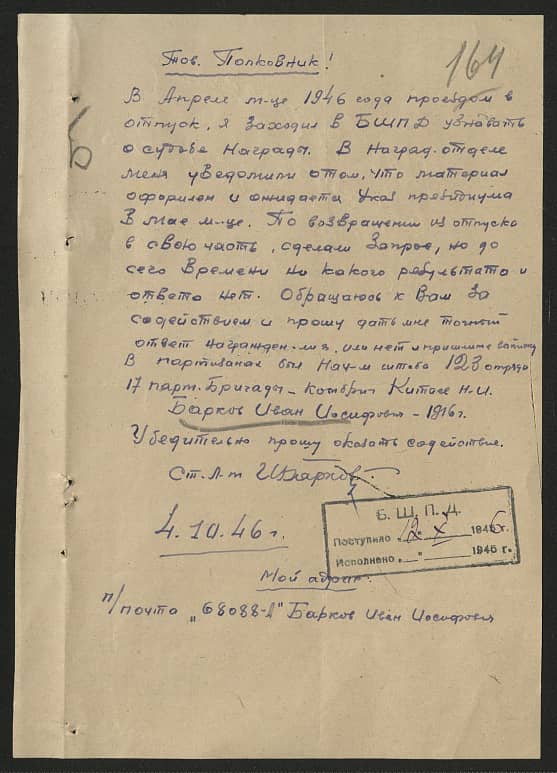 Тов. Полковник!
164
В Апреле м-це 1946 года проездом в
отпуск, я заходил в БШПД узнавать
о судьбе Награды. В Наград. отделе
меня уведомили о том, что материал
оформлен и ожидается Указ президиума
В мае м-це. По возвращении из отпуска
в свою часть, сделал запрос, но до
сего Времени ни какого результата и
ответа нет. Обращаюсь к Вам За
содействием и прошу дать мне точный
ответ награжден-ли я, или нет и пришлите
В партизанах был Нач-м штаба 123 отряда
17 парт. Бригады - комбриг Китаев Н-И.
Барков Иван Иосифович - 1916 г.
Убедительно прошу оказать содействие.
Ст. Л-т ИБарков.
4.10.46 г.
Б. Ш. П. Д.
Поступило „12" X 1946 г.
Исполнено „ " 1946 г.
Мой адрес:
п/почта „68088-А" Барков Иван Иосифович